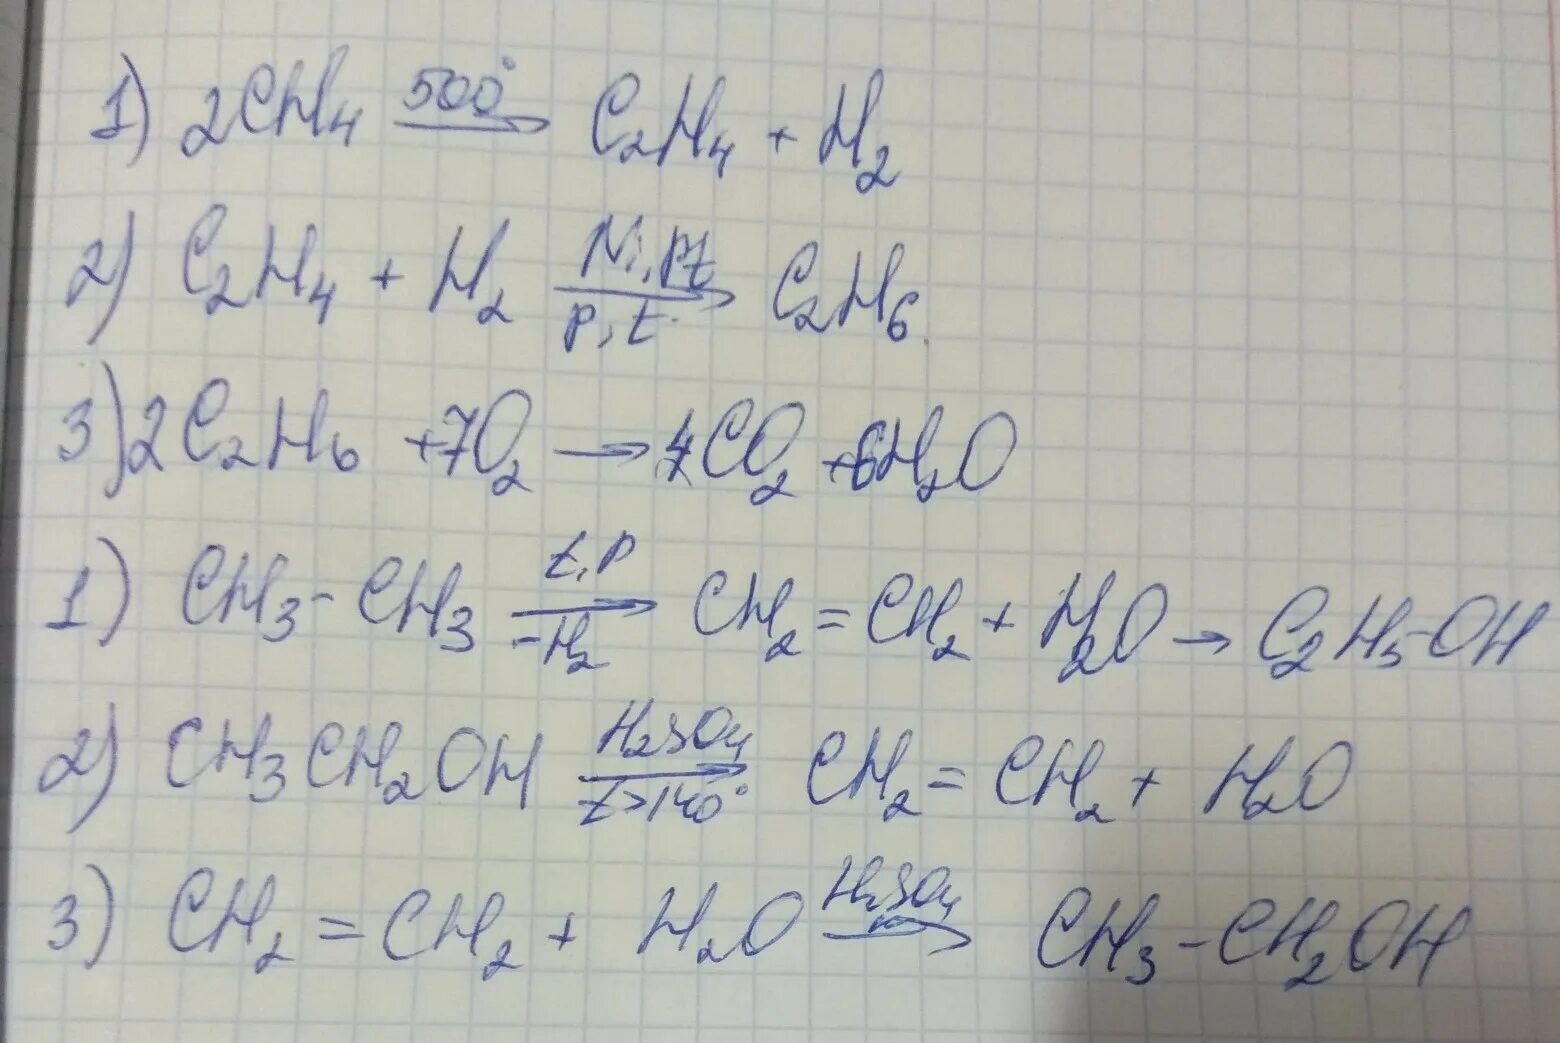 1) 2CH₄ —500°→ C₂H₄ + H₂
2) C₂H₄ + H₂ —Ni, Pt / p, t→ C₂H₆
3) 2C₂H₆ + 7O₂ → 4CO₂ + 6H₂O
1) CH₃ - CH₃ —t, p / -H₂→ CH₂ = CH₂ + H₂O → C₂H₅-OH
2) CH₃CH₂OH —H₂SO₄ / t>140°→ CH₂ = CH₂ + H₂O
3) CH₂ = CH₂ + H₂O —H₂SO₄→ CH₃ - CH₂OH